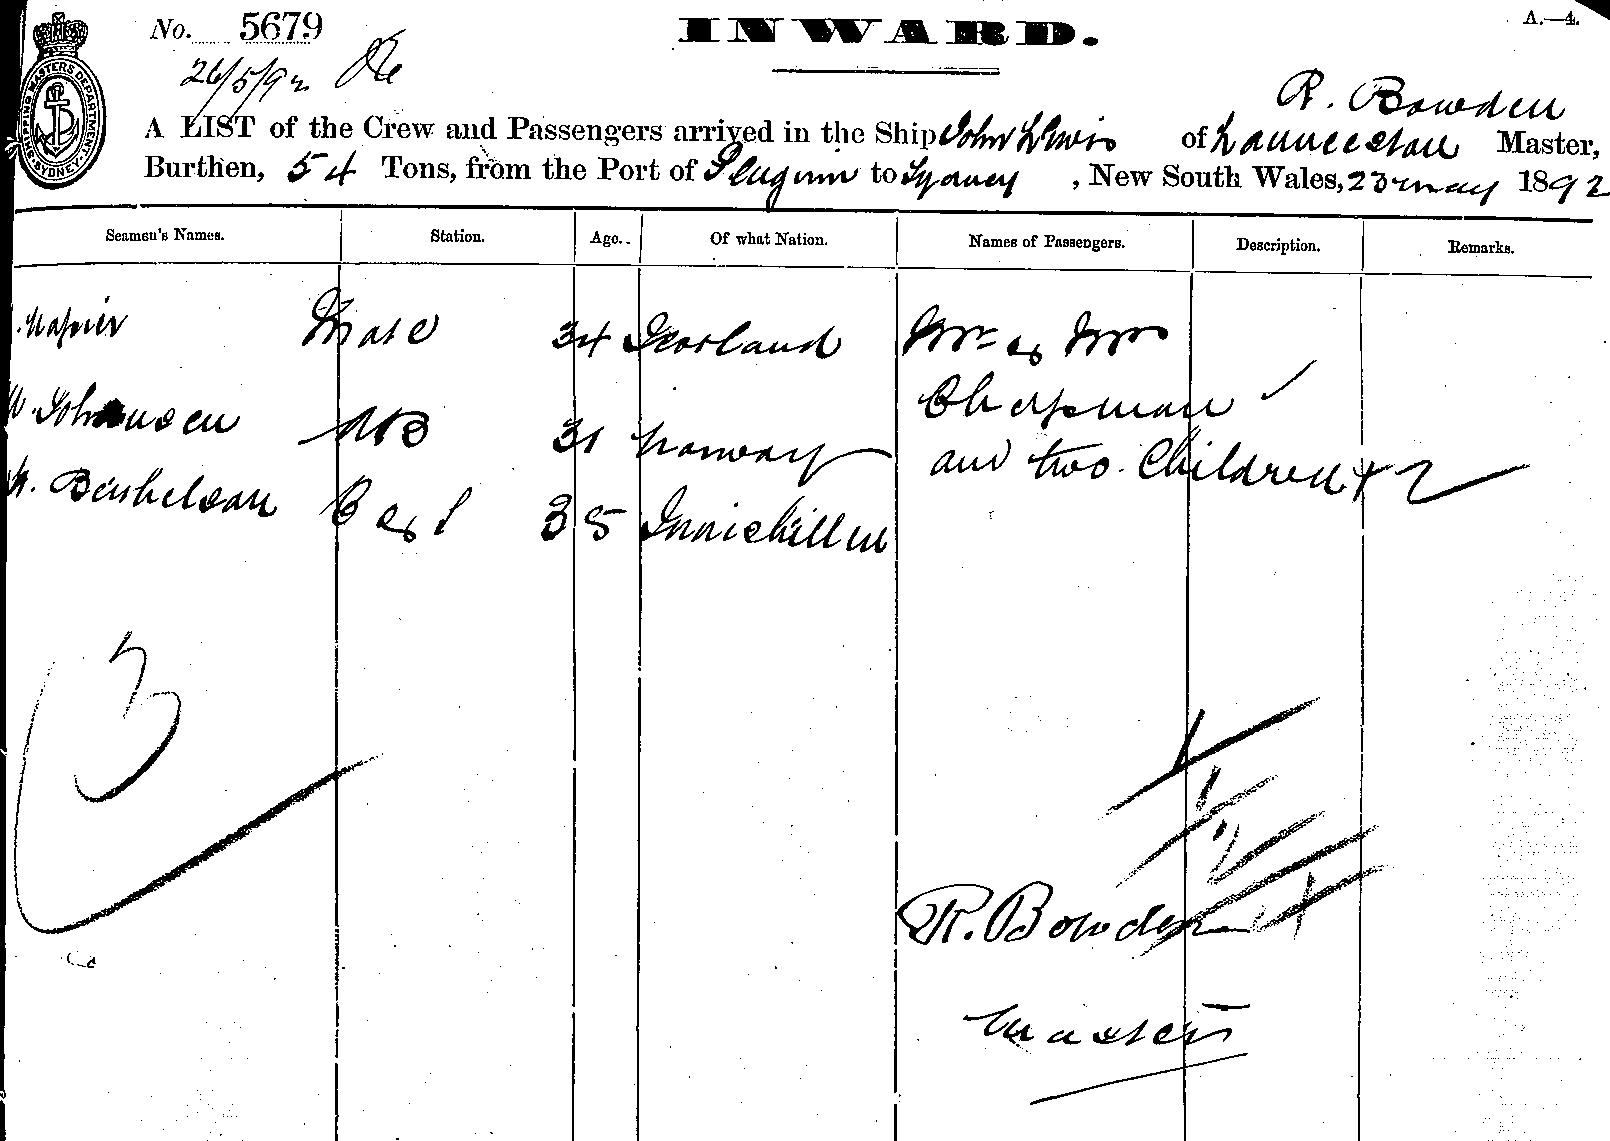 No. 5679
INWARD.
A.—4.
26/5/92
SHIPPING MASTERS DEPARTMENT. SYDNEY.
R. Bowden
A LIST of the Crew and Passengers arrived in the Ship John Lewis of Launceston Master,
Burthen, 54 Tons, from the Port of to Sydney, New South Wales, 23 May 1892
Seamen's Names. Station. Age. Of what Nation. Names of Passengers. Description. Remarks.
Napier Mate 34 Scotland Mr & Mrs
Johansen AB 31 Norway Chapman
and two Children + 2
35
3
1
1
2
4
R. Bowden
Master